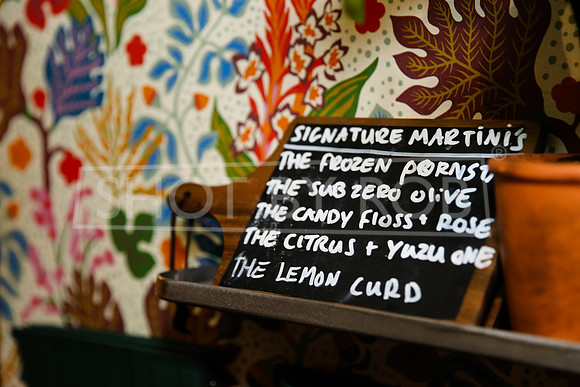 SIGNATURE MARTINI'S
THE FROZEN P@RNST
THE SUB ZERO OLIVE
THE CANDY FLOSS + ROSE
THE CITRUS + YUZU ONE
THE LEMON CURD
SHOT BY ROB